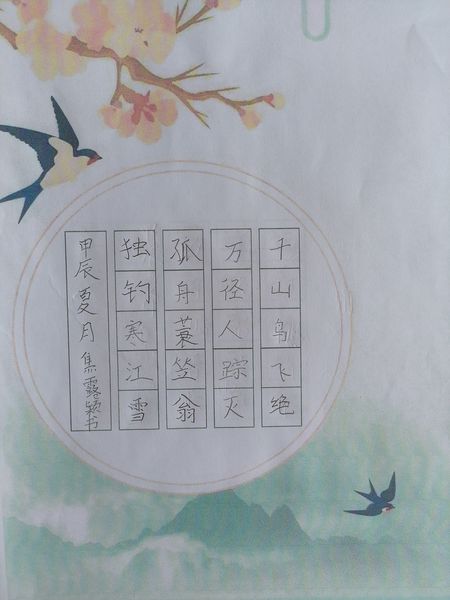 千山鸟飞绝
万径人踪灭
孤舟蓑笠翁
独钓寒江雪
甲辰夏月集露颖书